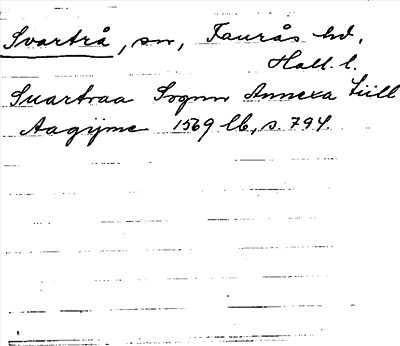 Svartrå, sn, Faurås hd,
Hall. l.
Suartraa Sognn Annexa Tiill
Aagijme 1569 lb, s. 794.